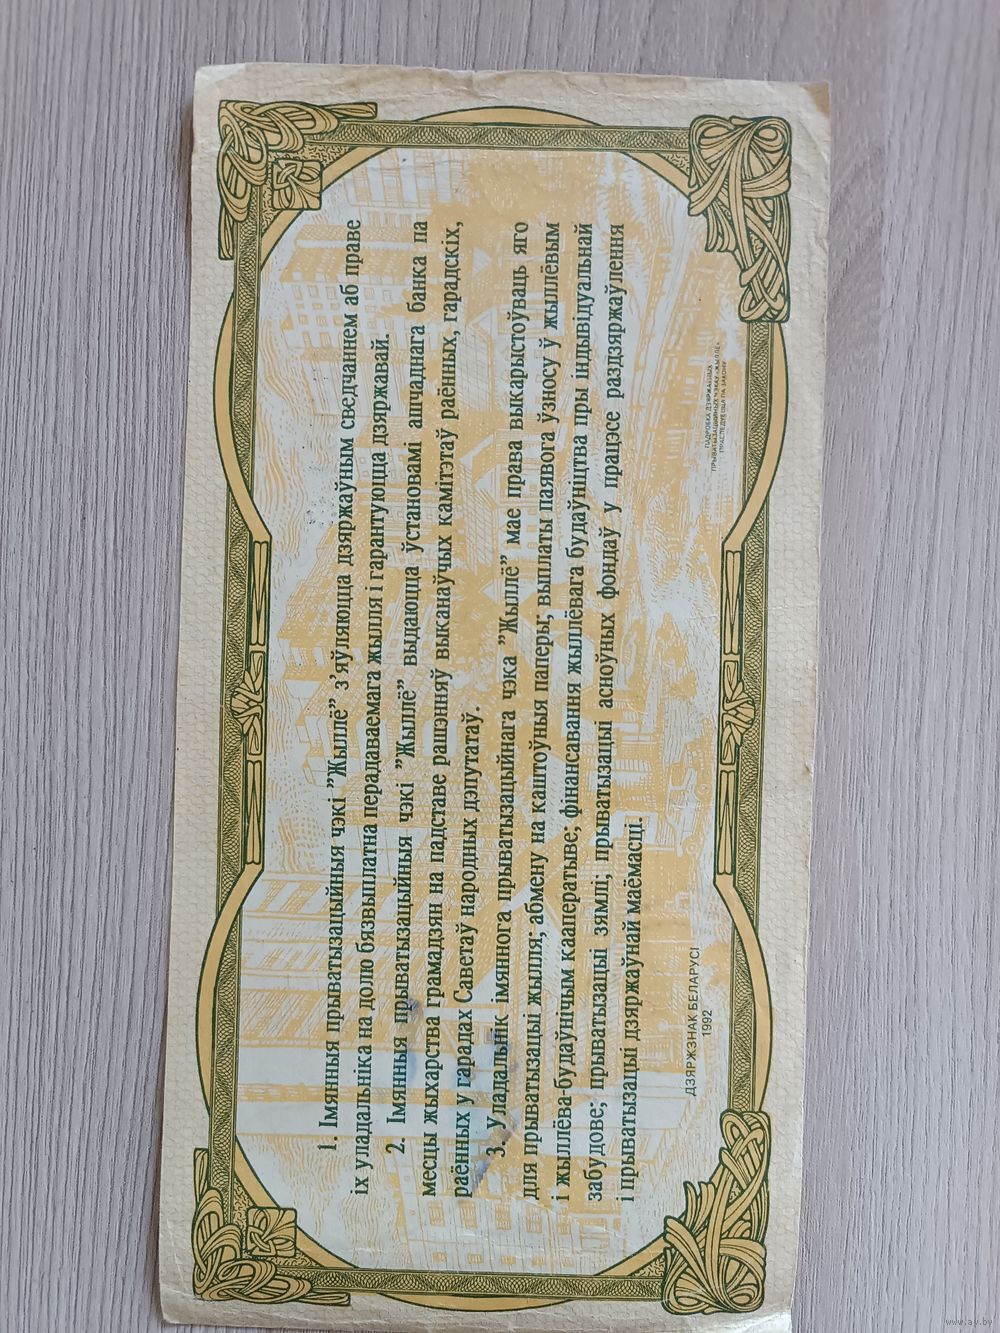 1. Імянныя прыватызацыйныя чэкі ”Жыллё” з’яўляюцца дзяржаўным сведчаннем аб праве
іх уладальніка на долю бязвыплатна перадаваемага жылля і гарантуюцца дзяржавай.
2. Імянныя прыватызацыйныя чэкі ”Жыллё” выдаюцца ўстановамі ашчаднага банка па
месцы жыхарства грамадзян на падставе рашэнняў выканаўчых камітэтаў раённых, гарадскіх,
раённых у гарадах Саветаў народных дэпутатаў.
3. Уладальнік імяннога прыватызацыйнага чэка ”Жыллё” мае права выкарыстоўваць яго
для прыватызацыі жылля; абмену на каштоўныя паперы; выплаты паявога ўзносу ў жыллёвым
і жыллёва-будаўнічым кааператыве; фінансавання жыллёвага будаўніцтва пры індывідуальнай
забудове; прыватызацыі зямлі; прыватызацыі асноўных фондаў у працэсе раздзяржаўлення
і прыватызацыі дзяржаўнай маёмасці.
ДЗЯРЖЗНАК БЕЛАРУСІ
1992
ПАДРОБКА ДЗЯРЖАЎНЫХ
ПРЫВАТЫЗАЦЫЙНЫХ ЧЭКАЎ «ЖЫЛЛЁ»
ПРАСЛЕДУЕЦЦА ПА ЗАКОНУ
www.ay.by